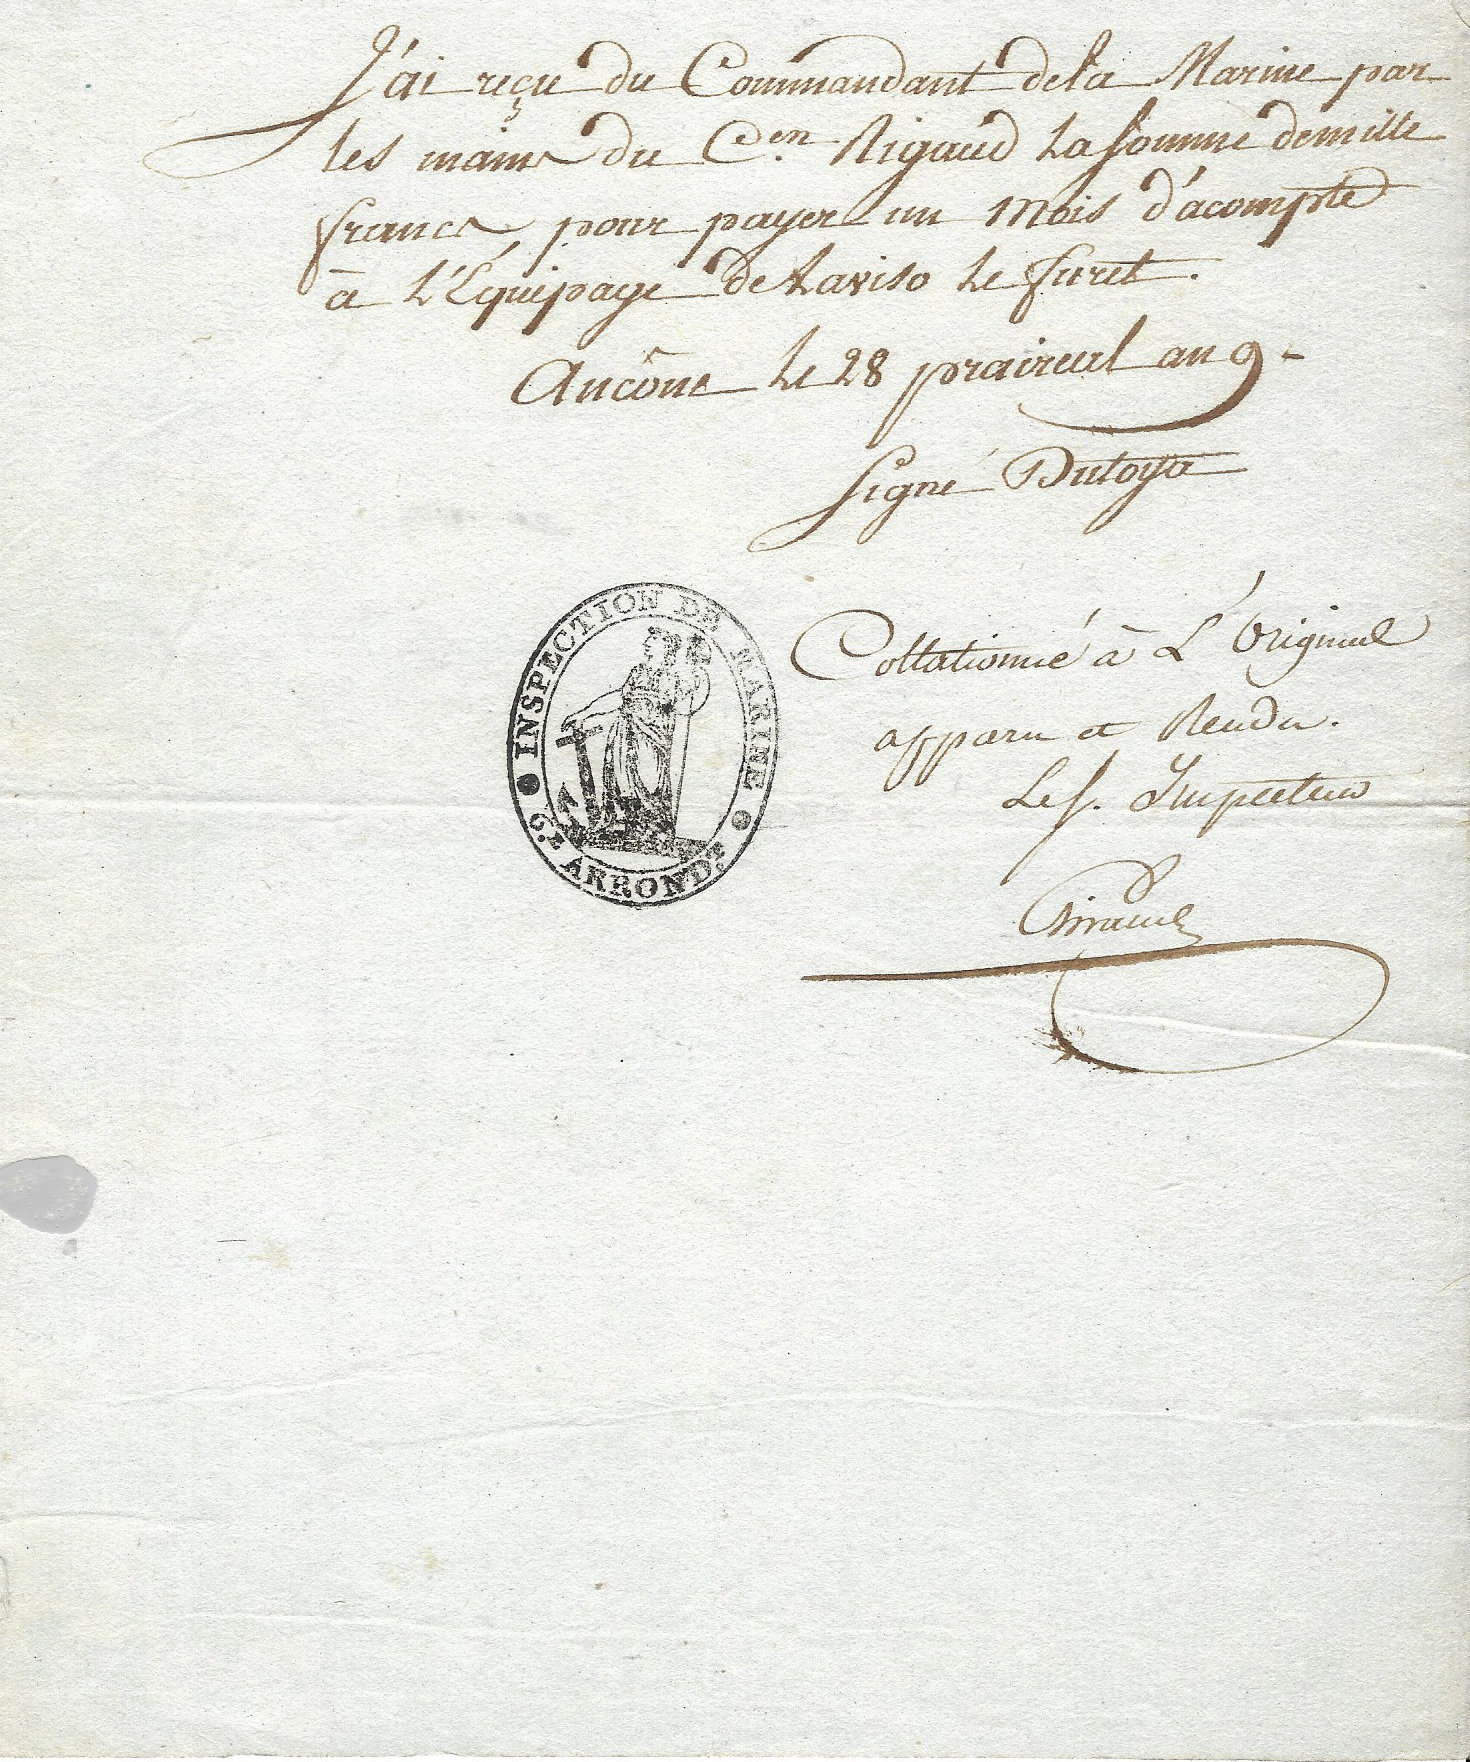 J'ai reçu du Commandant dela Marine par
les mains du C.en Rigaud La Somme demille
francs pour payer un Mois d'acompte
a L'Équipage de Laviso Le furet.
Ancône Le 28 prairial an 9 -
Signé Dutoya
INSPECTION DE MARINE
6.E ARROND.T
Collationné à L'Original
apparu et Rendu.
Le S. Inspecteur